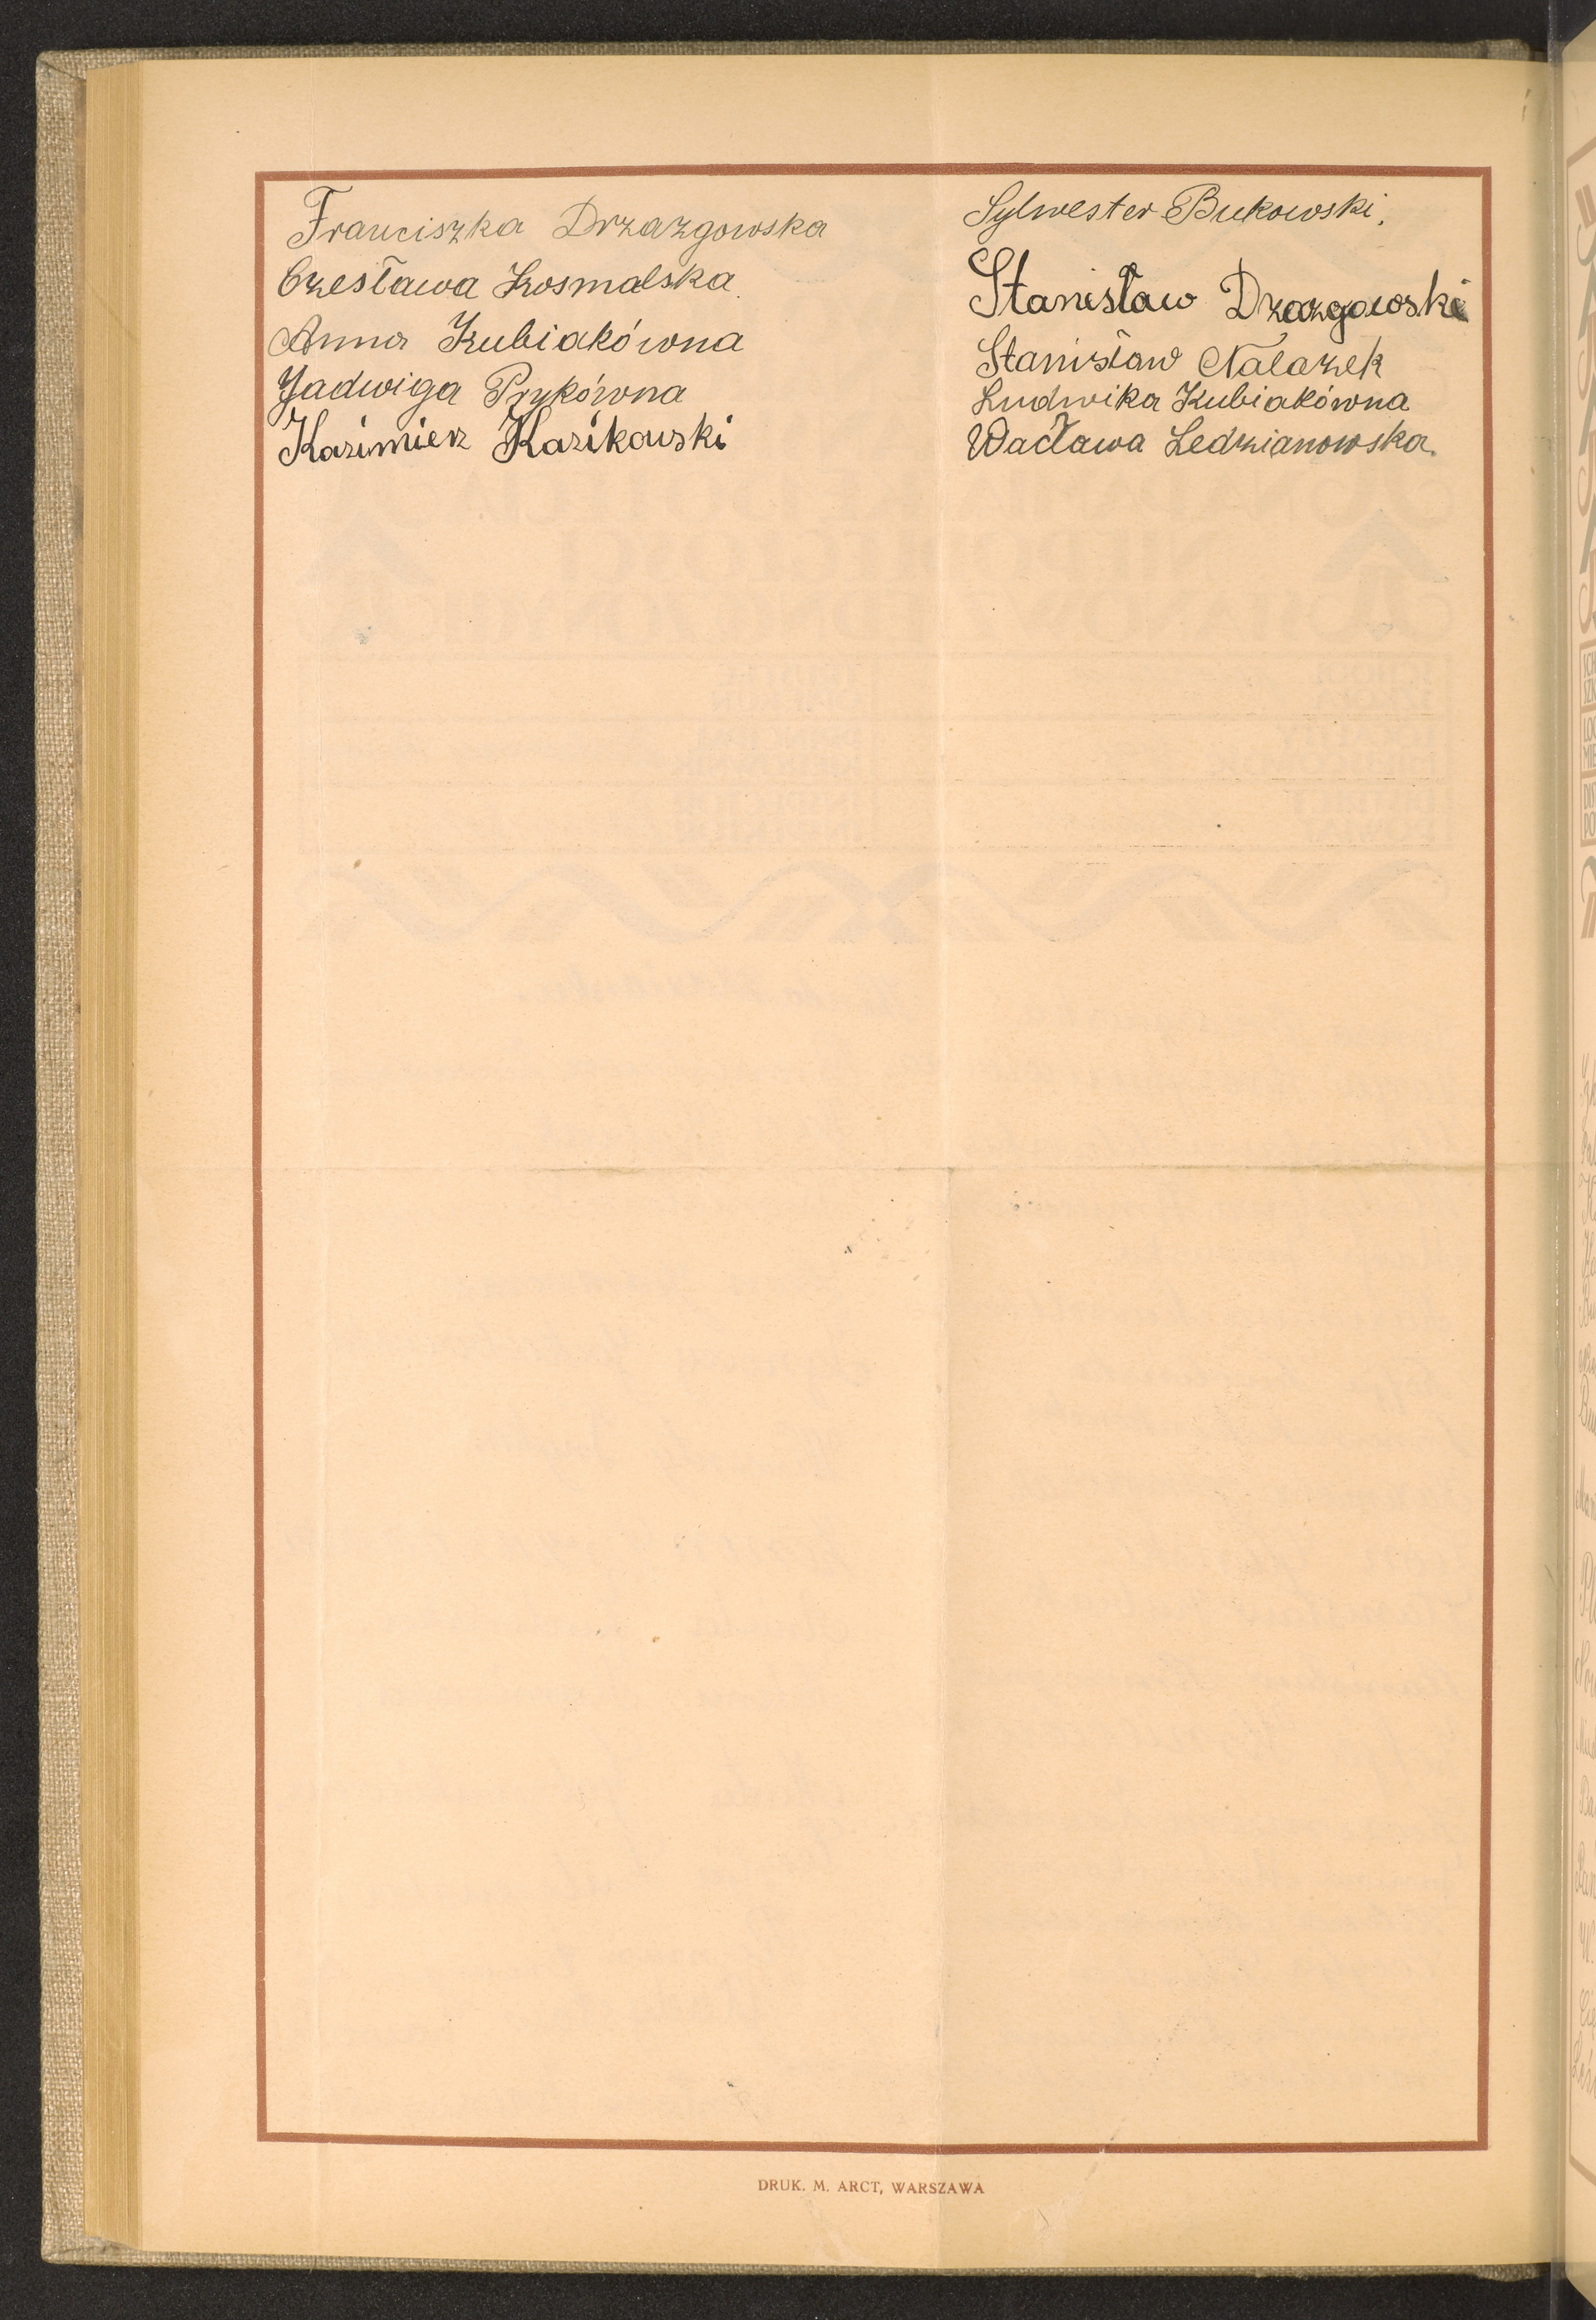 Franciszka Drzazgowska
Czesława Kosmalska
Anna Kubiakówna
Jadwiga Prykówna
Kazimierz Kazikowski
Sylwester Bukowski.
Stanisław Drzazgowski
Stanisław Nalazek
Ludwika Kubiakówna
Wacława Ledzianowska.
DRUK. M. ARCT, WARSZAWA